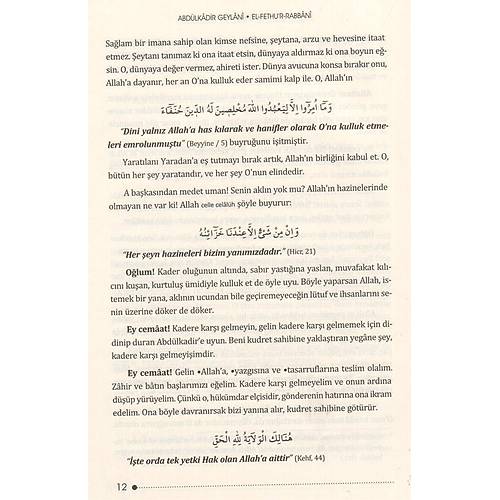 ABDÜLKÂDİR GEYLÂNÎ • EL-FETHU'R-RABBÂNÎ
Sağlam bir imana sahip olan kimse nefsine, şeytana, arzu ve hevesine itaat
etmez. Şeytanı tanımaz ki ona itaat etsin, dünyaya aldırmaz ki ona boyun eğ-
sin. O, dünyaya değer vermez, ahireti ister. Dünya avucuna konsa bırakır onu,
Allah'a dayanır, her an O'na kulluk eder samimi kalp ile. O, Allah'ın
وَمَٓا اُمِرُٓوا اِلَّا لِيَعْبُدُوا اللّٰهَ مُخْلِصِينَ لَهُ الدِّينَ حُنَفَٓاءَ
"Dini yalnız Allah'a has kılarak ve hanifler olarak O'na kulluk etme-
leri emrolunmuştu" (Beyyine / 5) buyruğunu işitmiştir.
Yaratılanı Yaradan'a eş tutmayı bırak artık, Allah'ın birliğini kabul et. O,
bütün her şey yaratandır, ve her şey O'nun elindedir.
A başkasından medet uman! Senin aklın yok mu? Allah'ın hazinelerinde
olmayan ne var ki! Allah celle celâlüh şöyle buyurur:
وَاِنْ مِنْ شَيْءٍ اِلَّا عِنْدَنَا خَزَٓائِنُهُ
"Her şeyn hazineleri bizim yanımızdadır." (Hicr, 21)
Oğlum! Kader oluğunun altında, sabır yastığına yaslan, muvafakat kılı-
cını kuşan, kurtuluş ümidiyle kulluk et de öyle uyu. Böyle yaparsan Allah, is-
temek bir yana, aklının ucundan bile geçiremeyeceğin lütuf ve ihsanlarını se-
nin üzerine döker de döker.
Ey cemâat! Kadere karşı gelmeyin, gelin kadere karşı gelmemek için di-
dinip duran Abdülkadir'e uyun. Beni kudret sahibine yaklaştıran yegâne şey,
kadere karşı gelmeyişimdir.
Ey cemâat! Gelin •Allah'a, •yazgısına ve •tasarruflarına teslim olalım.
Zâhir ve bâtın başlarımızı eğelim. Kadere karşı gelmeyelim ve onun ardına
düşüp yürüyelim. Çünkü o, hükümdar elçisidir, gönderenin hatırına ona ikram
edelim. Ona böyle davranırsak bizi yanına alır, kudret sahibine götürür.
هُنَالِكَ الْوَلَايَةُ لِلّٰهِ الْحَقِّ
"İşte orda tek yetki Hak olan Allah'a aittir" (Kehf, 44)
12 •